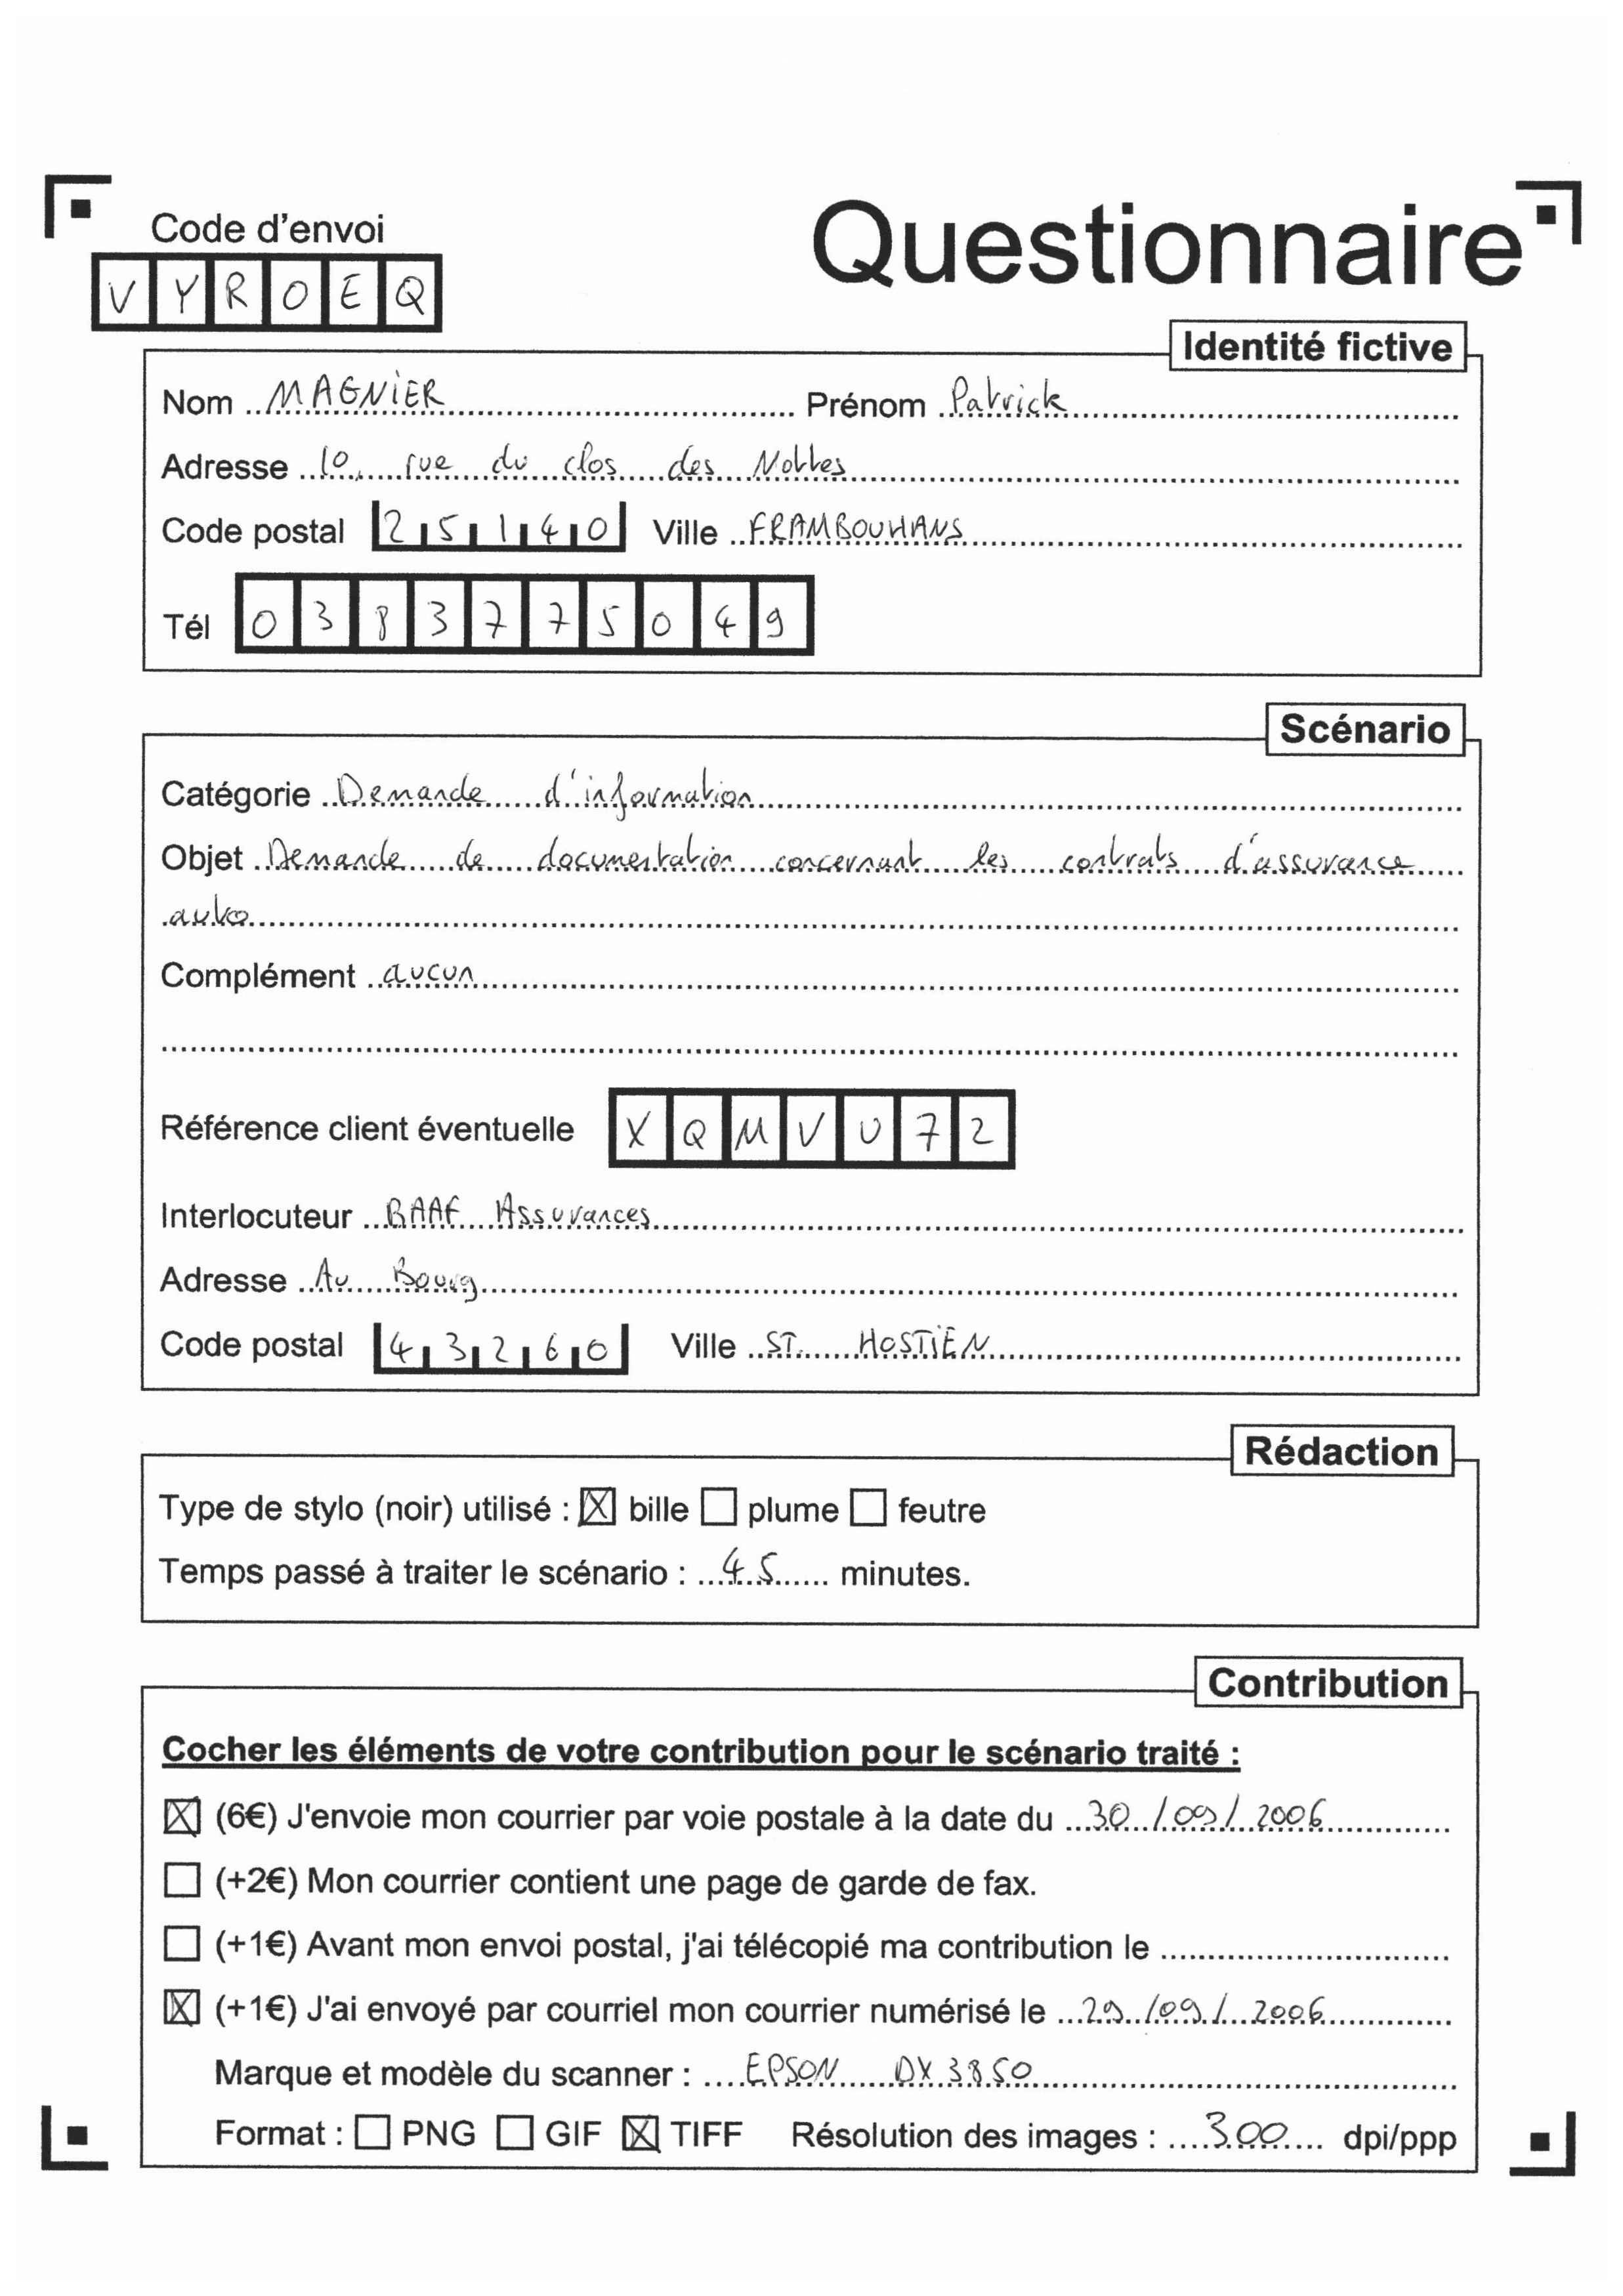 Code d'envoi
Questionnaire
VYROEQ
Identité fictive
Nom MAGNIER Prénom Patrick
Adresse 10, rue du clos des Nottes
Code postal 25140 Ville FRAMBOUHANS
Tél 0383775049
Scénario
Catégorie Demande d'information
Objet Demande de documentation concernant les contrats d'assurance
auto
Complément aucun
Référence client éventuelle XQMVU72
Interlocuteur BAAF Assurances
Adresse Au Bourg
Code postal 43260 Ville ST HOSTIEN
Rédaction
Type de stylo (noir) utilisé : ☒ bille ☐ plume ☐ feutre
Temps passé à traiter le scénario : 45 minutes.
Contribution
Cocher les éléments de votre contribution pour le scénario traité :
☒ (6€) J'envoie mon courrier par voie postale à la date du 30/09/2006
☐ (+2€) Mon courrier contient une page de garde de fax.
☐ (+1€) Avant mon envoi postal, j'ai télécopié ma contribution le
☒ (+1€) J'ai envoyé par courriel mon courrier numérisé le 29/09/2006
Marque et modèle du scanner : EPSON DX3850
Format : ☐ PNG ☐ GIF ☒ TIFF Résolution des images : 300 dpi/ppp